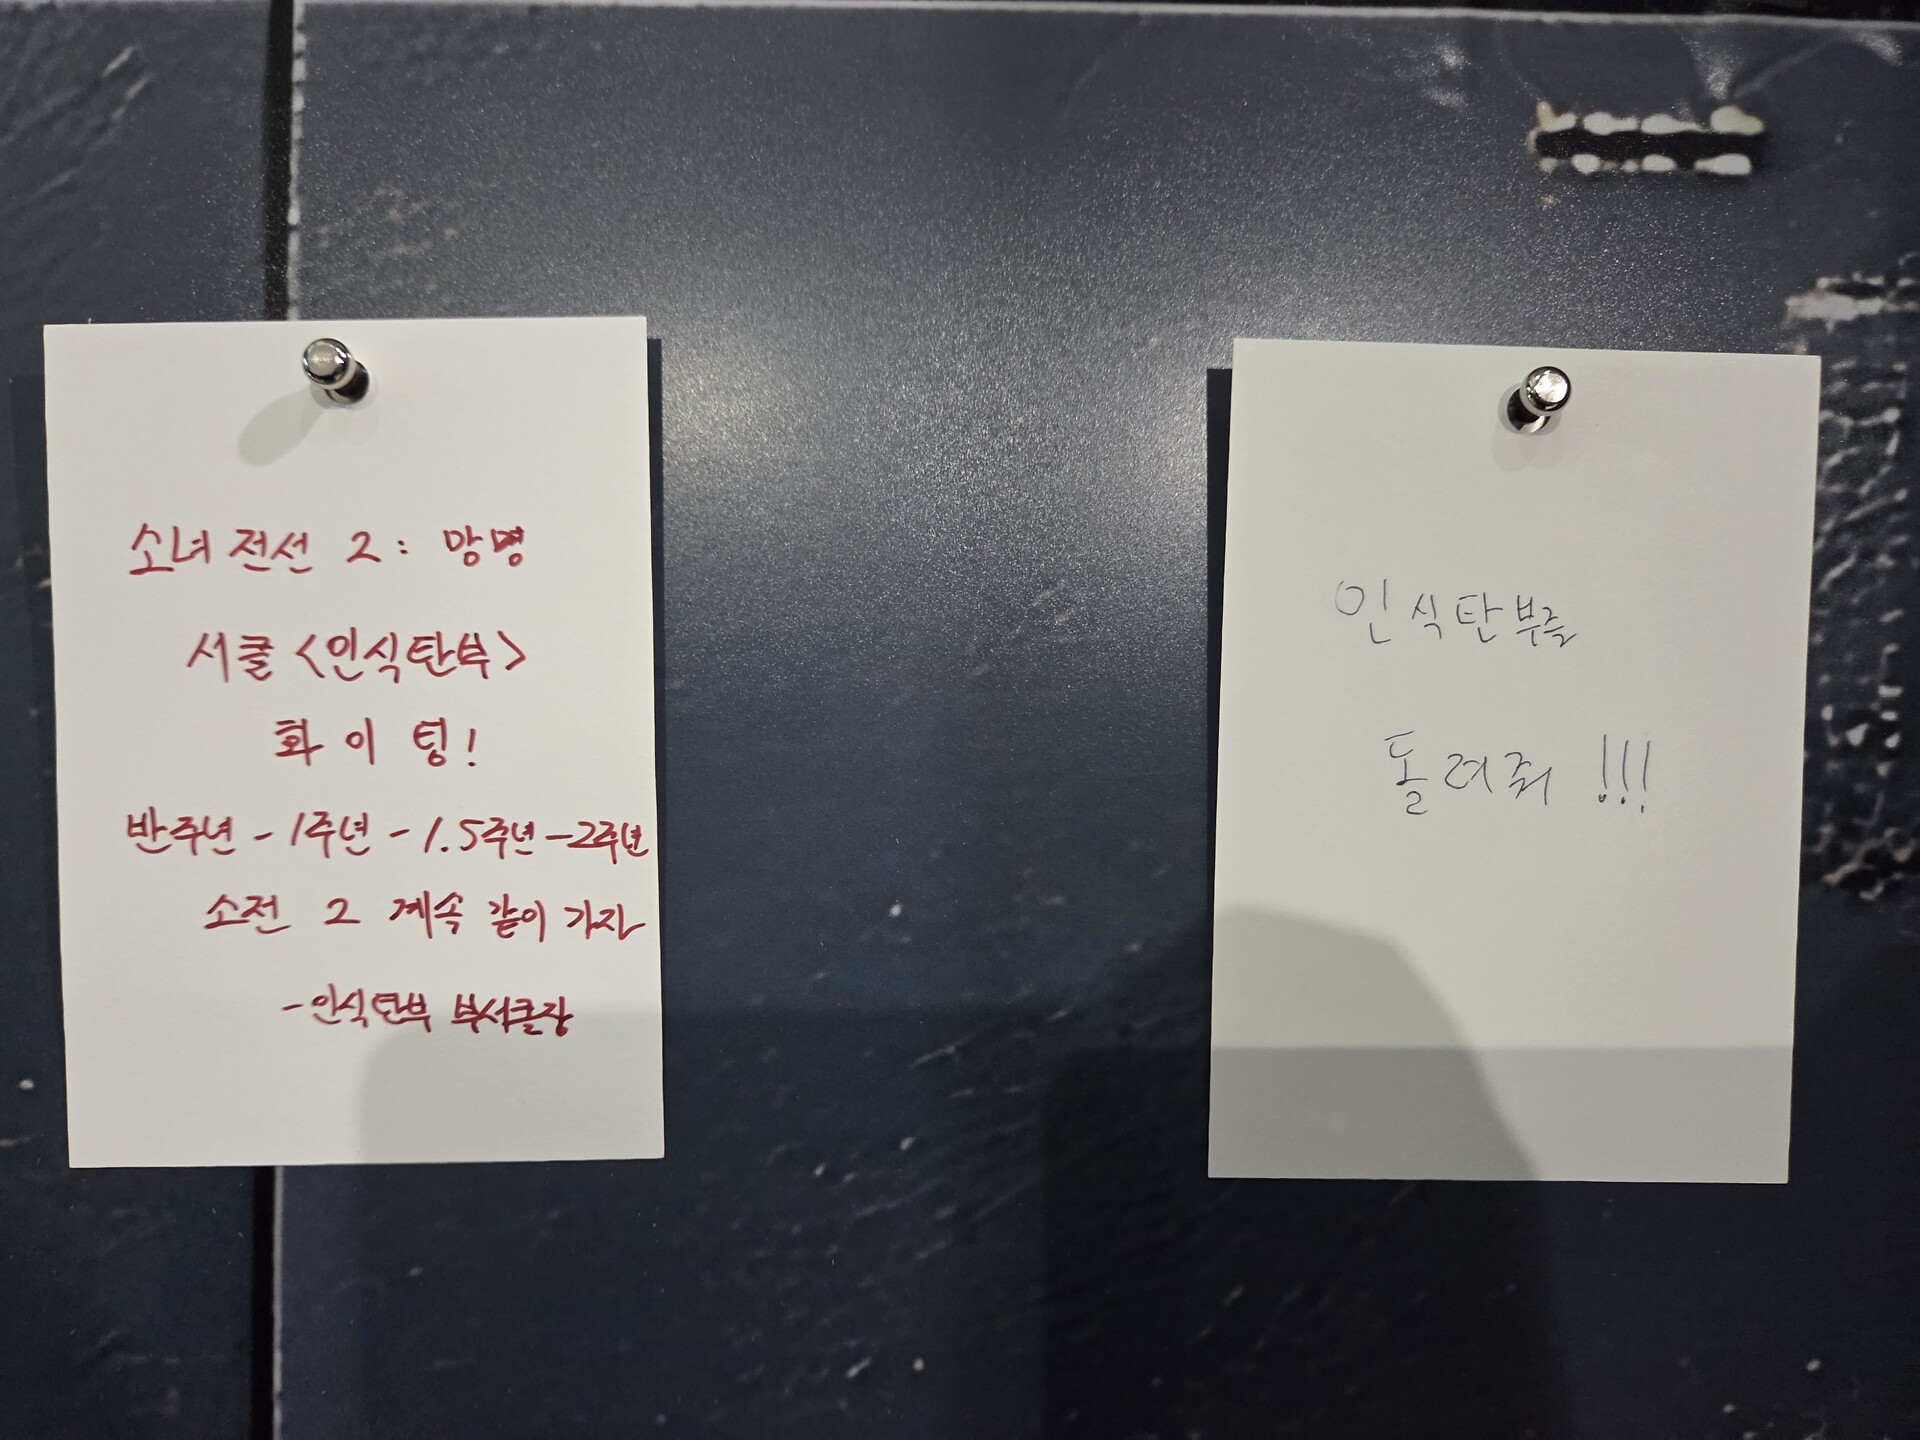 소녀전선 2: 망명
서클 <인식탄부>
화이팅!
반주년 - 1주년 - 1.5주년 - 2주년
소전 2 계속 같이 가자
- 인식탄부 부서클장
인식탄부를
돌려줘 !!!